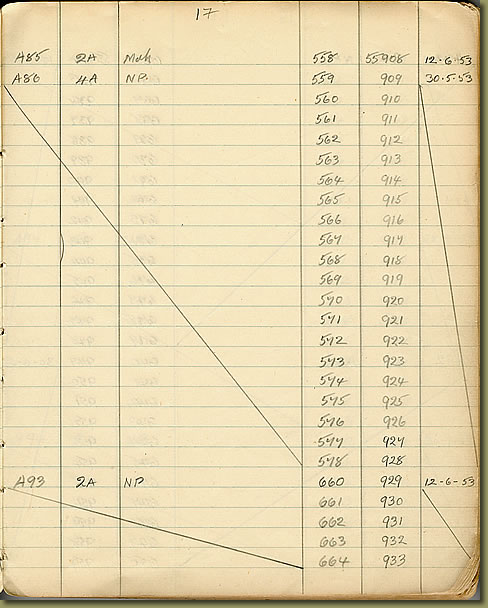 17
A85 2A Moh 558 55908 12-6-53
A86 4A NP. 559 909 30.5.53
560 910
561 911
562 912
563 913
564 914
565 915
566 916
567 917
568 918
569 919
570 920
571 921
572 922
573 923
574 924
575 925
576 926
577 927
578 928
A93 2A NP 660 929 12-6-53
661 930
662 931
663 932
664 933